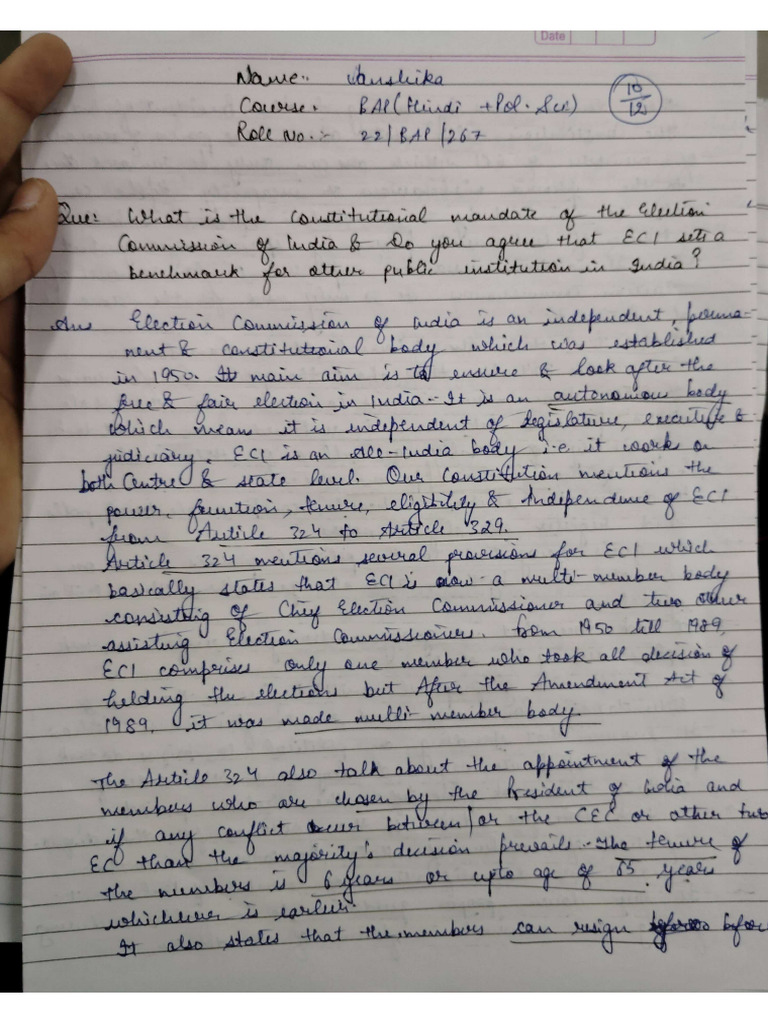 Date
Name:- Vanshika
Course:- BAP(Hindi + Pol. Sci)
10/12
Roll No.:- 22/BAP/267
Que: What is the Constitutional mandate of the Election
Commission of India & Do you agree that ECI sets a
benchmark for other public institution in India?
Ans Election Commission of India is an independent, perma-
nent & constitutional body which was established
in 1950. It main aim is to ensure & look after the
free & fair election in India. It is an autonomous body
which mean it is independent of legislature, executive &
judiciary. ECI is an all-India body i.e. it work on
both Centre & state level. Our Constitution mentions the
power, function, tenure, eligibility & Independence of ECI
from Article 324 to Article 329.
Article 324 mentions several provisions for ECI which
basically states that ECI is now a multi-member body
consisting of Chief Election Commissioner and two other
assisting Election Commissioners. from 1950 till 1989,
ECI comprises only one member who took all decision of
holding the elections but After the Amendment Act of
1989, it was made multi-member body.
The Article 324 also talk about the appointment of the
members who are chosen by the President of India and
if any conflict occur between/or the CEC or other two
EC than the majority's decision prevails. The tenure of
the members is 6 years or upto age of 65 years
whichever is earlier.
It also states that the members can resign before